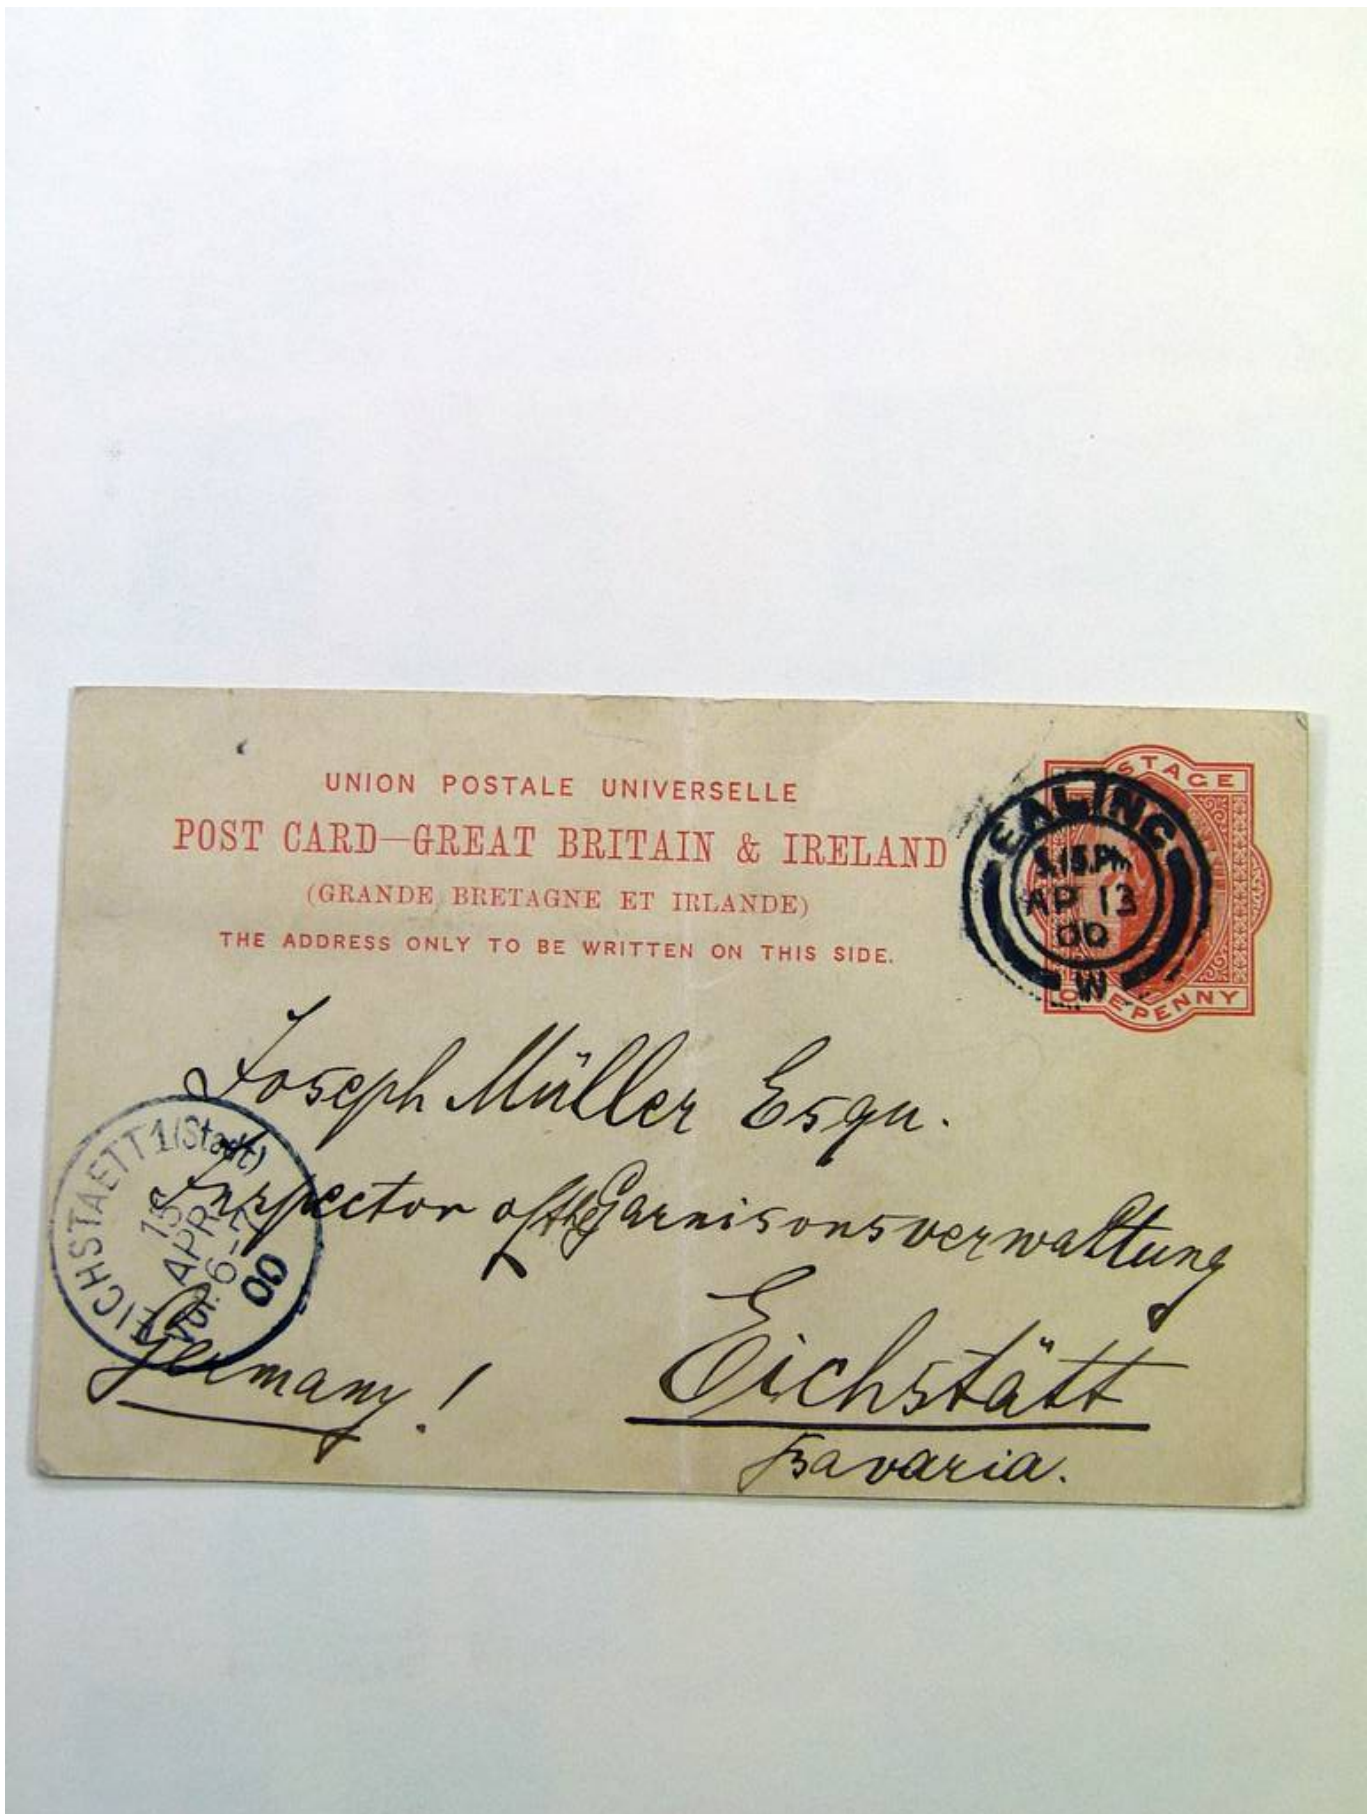 UNION POSTALE UNIVERSELLE
POST CARD—GREAT BRITAIN & IRELAND
(GRANDE BRETAGNE ET IRLANDE)
THE ADDRESS ONLY TO BE WRITTEN ON THIS SIDE.
STAGE
ONE PENNY
EALING
AP 13
00
W
Joseph Müller Esqu.
Inspector of the Garnisonsverwaltung
Eichstätt
Bavaria.
Germany!
EICHSTAETT 1 (Stadt)
15
APR
Vor. 6-7
00